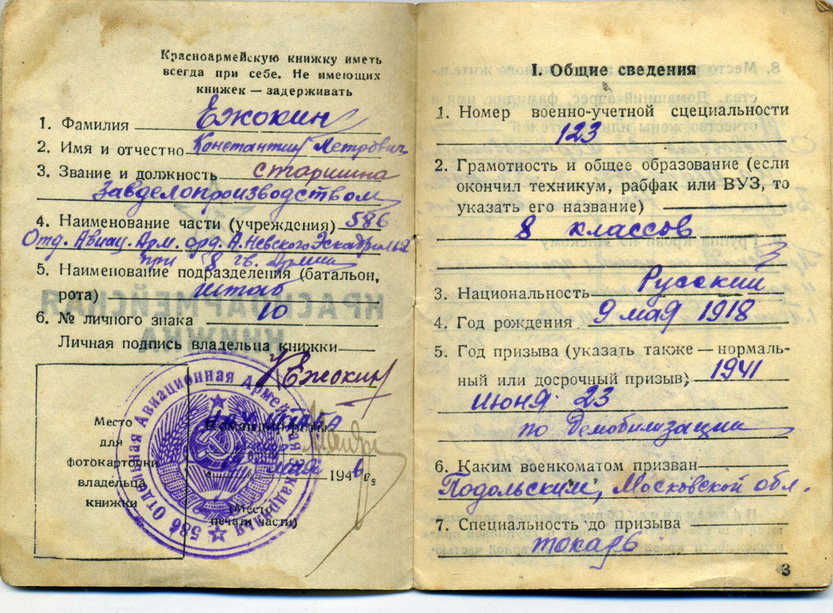 Красноармейскую книжку иметь
всегда при себе. Не имеющих
книжек — задерживать
1. Фамилия Ежокин
2. Имя и отчество Константин Петрович
3. Звание и должность старшина
Завделопроизводством
4. Наименование части (учреждения) 586
Отд. Авиац. Арм. орд. А. Невского Эскадрилья
при 8 гв. Армии
5. Наименование подразделения (батальон,
рота) штаб
6. № личного знака 10
Личная подпись владельца книжки
КЕжокин
Место
для
фотокарточки
владельца
книжки
586 Отдельная Авиационная Армейская Эскадрилья
мая 1946
(Место
печати части)
I. Общие сведения
1. Номер военно-учетной сцециальности
123
2. Грамотность и общее образование (если
окончил техникум, рабфак или ВУЗ, то
указать его название)
8 классов
3. Национальность Русский
4. Год рождения 9 мая 1918
5. Год призыва (указать также — нормаль-
ный или досрочный призыв) 1941
июня 23
по демобилизации
6. Каким военкоматом призван
Подольским, Московской обл.
7. Специальность до призыва
токарь
3